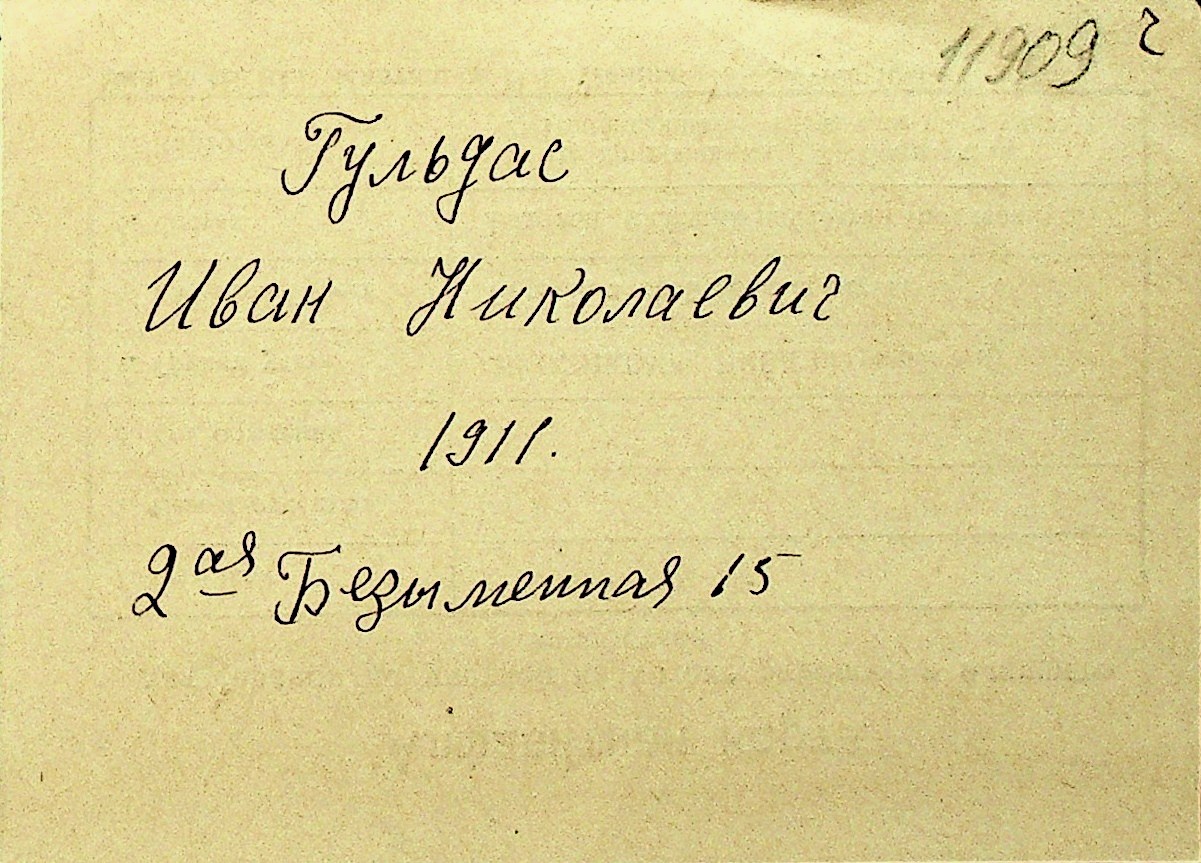 11909 г
Гульдас
Иван Николаевич
1911.
2ая Безыменная 15